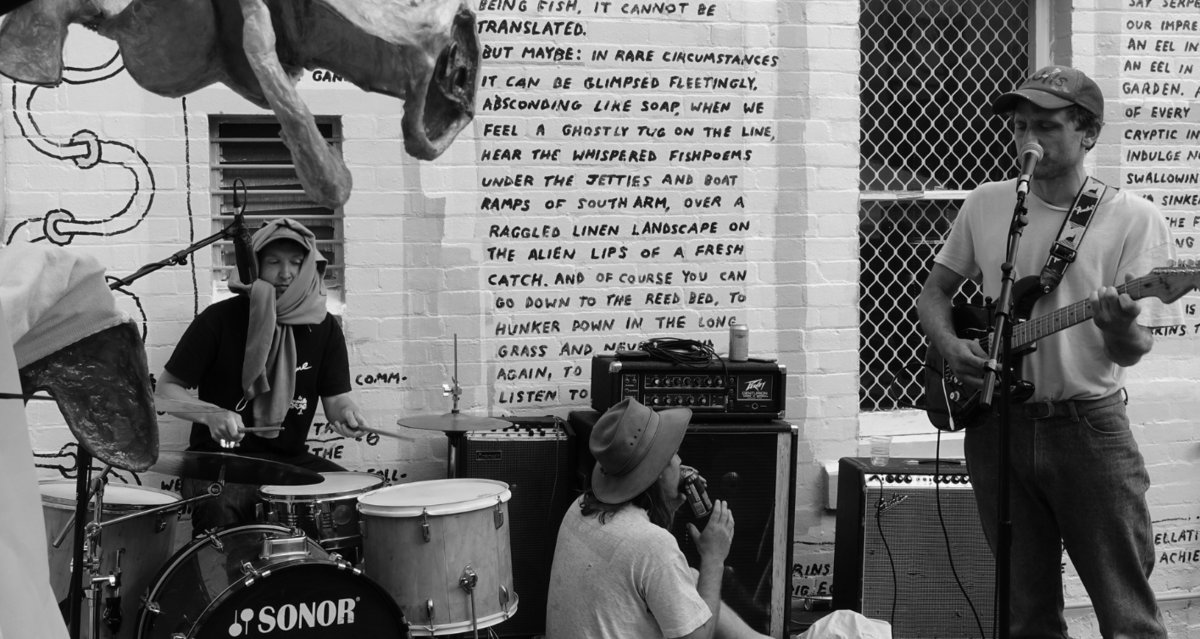 BEING FISH, IT CANNOT BE
TRANSLATED.
BUT MAYBE: IN RARE CIRCUMSTANCES
IT CAN BE GLIMPSED FLEETINGLY.
ABSCONDING LIKE SOAP, WHEN WE
FEEL A GHOSTLY TUG ON THE LINE,
HEAR THE WHISPERED FISHPOEMS
UNDER THE JETTIES AND BOAT
RAMPS OF SOUTH ARM, OVER A
RAGGLED LINEN LANDSCAPE ON
THE ALIEN LIPS OF A FRESH
CATCH. AND OF COURSE YOU CAN
GO DOWN TO THE REED BED, TO
HUNKER DOWN IN THE LONG
GRASS AND
AGAIN, TO
LISTEN TO
GAN
COMM-
THE
SAY
OUR IMPRE
AN EEL IN
AN EEL IN
GARDEN. A
OF EVERY
CRYPTIC IN
INDULGE
SWALLOWING
SINKE
THE
IS
ELLATI
ACHIE
RINS
BIG
PEAVEY
Fender
SONOR